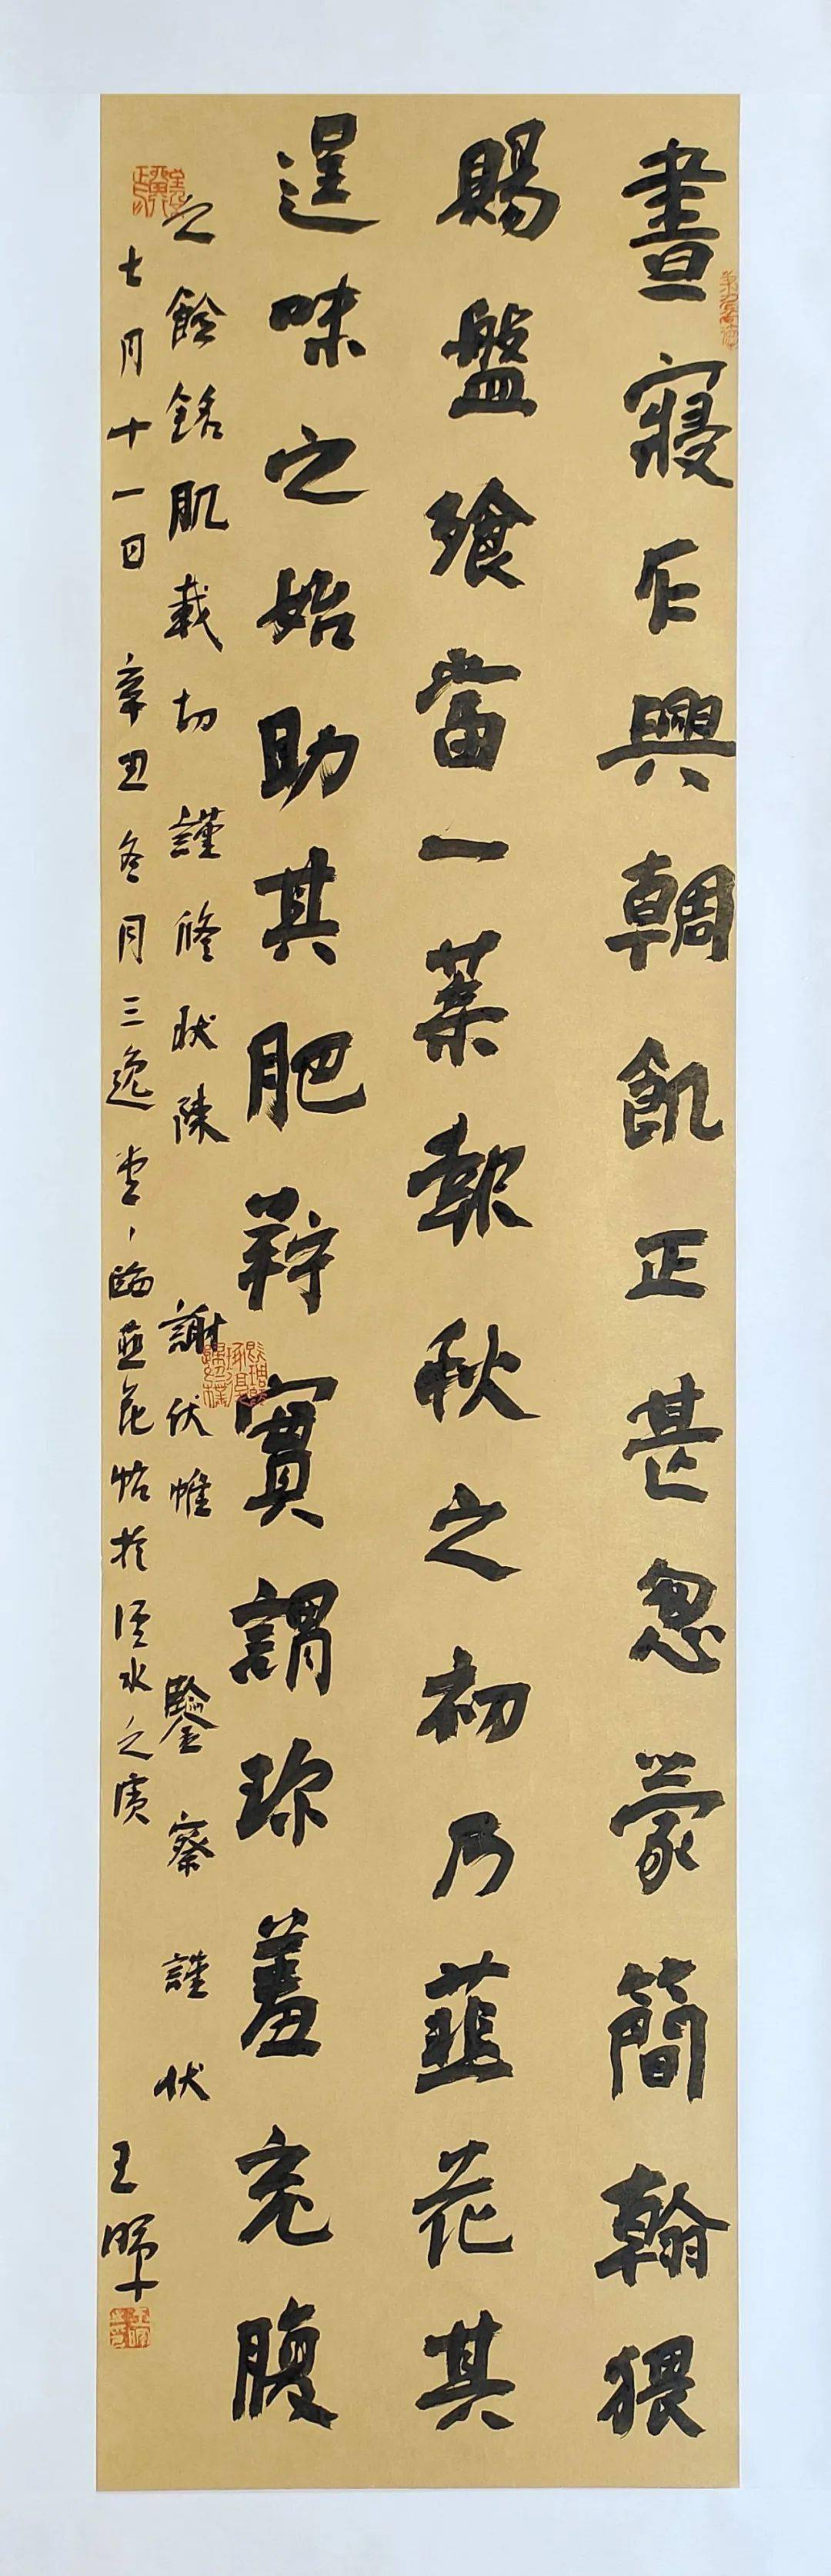 晝寢乍興輖飢正甚忽蒙簡翰猥
賜盤飧當一葉報秋之初乃韭花其
逞味之始助其肥羜實謂珍羞充腹
之餘銘肌載切謹脩狀陳謝伏惟鑒察謹伏
七月十一日 辛丑冬月三逸堂臨韭花帖於涇水之濱 王